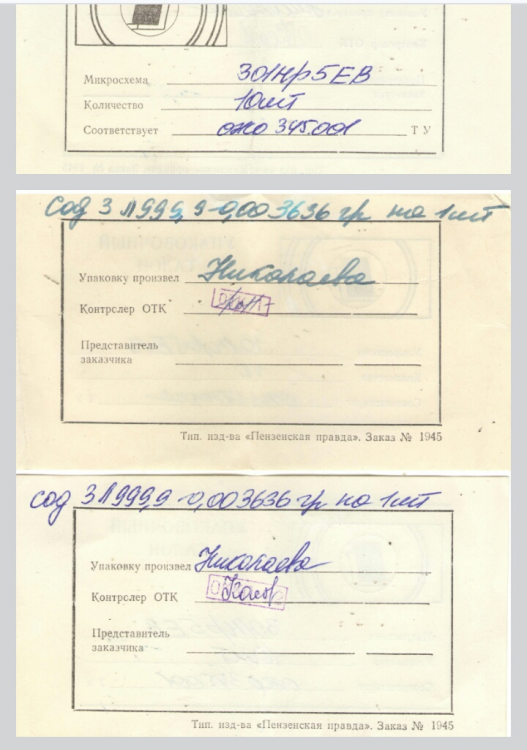 Микросхема 301НР5ЕВ
Количество 10шт
Соответствует ожо 345.001 ТУ
сод Зл 999,9 - 0,003636 гр на 1шт
Упаковку произвел Николаева
Контролер ОТК
Представитель
заказчика
Тип. изд-ва «Пензенская правда». Заказ № 1945
сод Зл 999,9 - 0,003636 гр на 1шт
Упаковку произвел Николаева
Контролер ОТК
Представитель
заказчика
Тип. изд-ва «Пензенская правда». Заказ № 1945